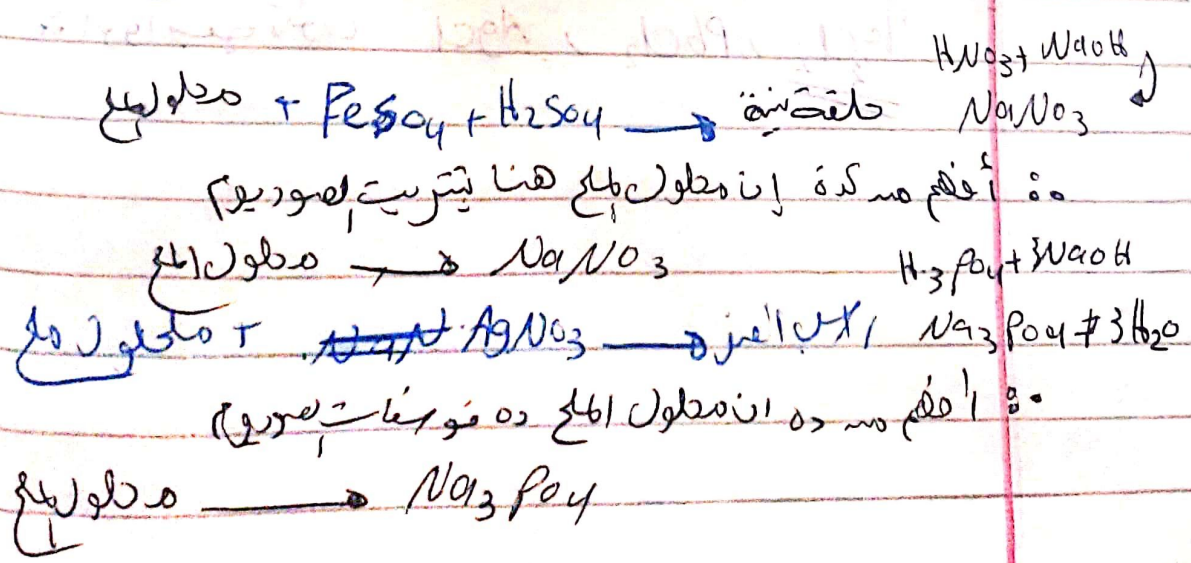 HNO3 + NaOH
محلول الملح + FeSO4 + H2SO4 → حلقة بنية NaNO3
∴ أفهم من كدة إن محلول الملح هنا نيتريت الصوديوم
محلول الملح → NaNO3
H3PO4 + 3NaOH
محلول ملح + AgNO3 → راسب أصفر Na3PO4 + 3H2O
∴ أفهم من ده ان محلول الملح ده فوسفات الصوديوم
محلول الملح → Na3PO4